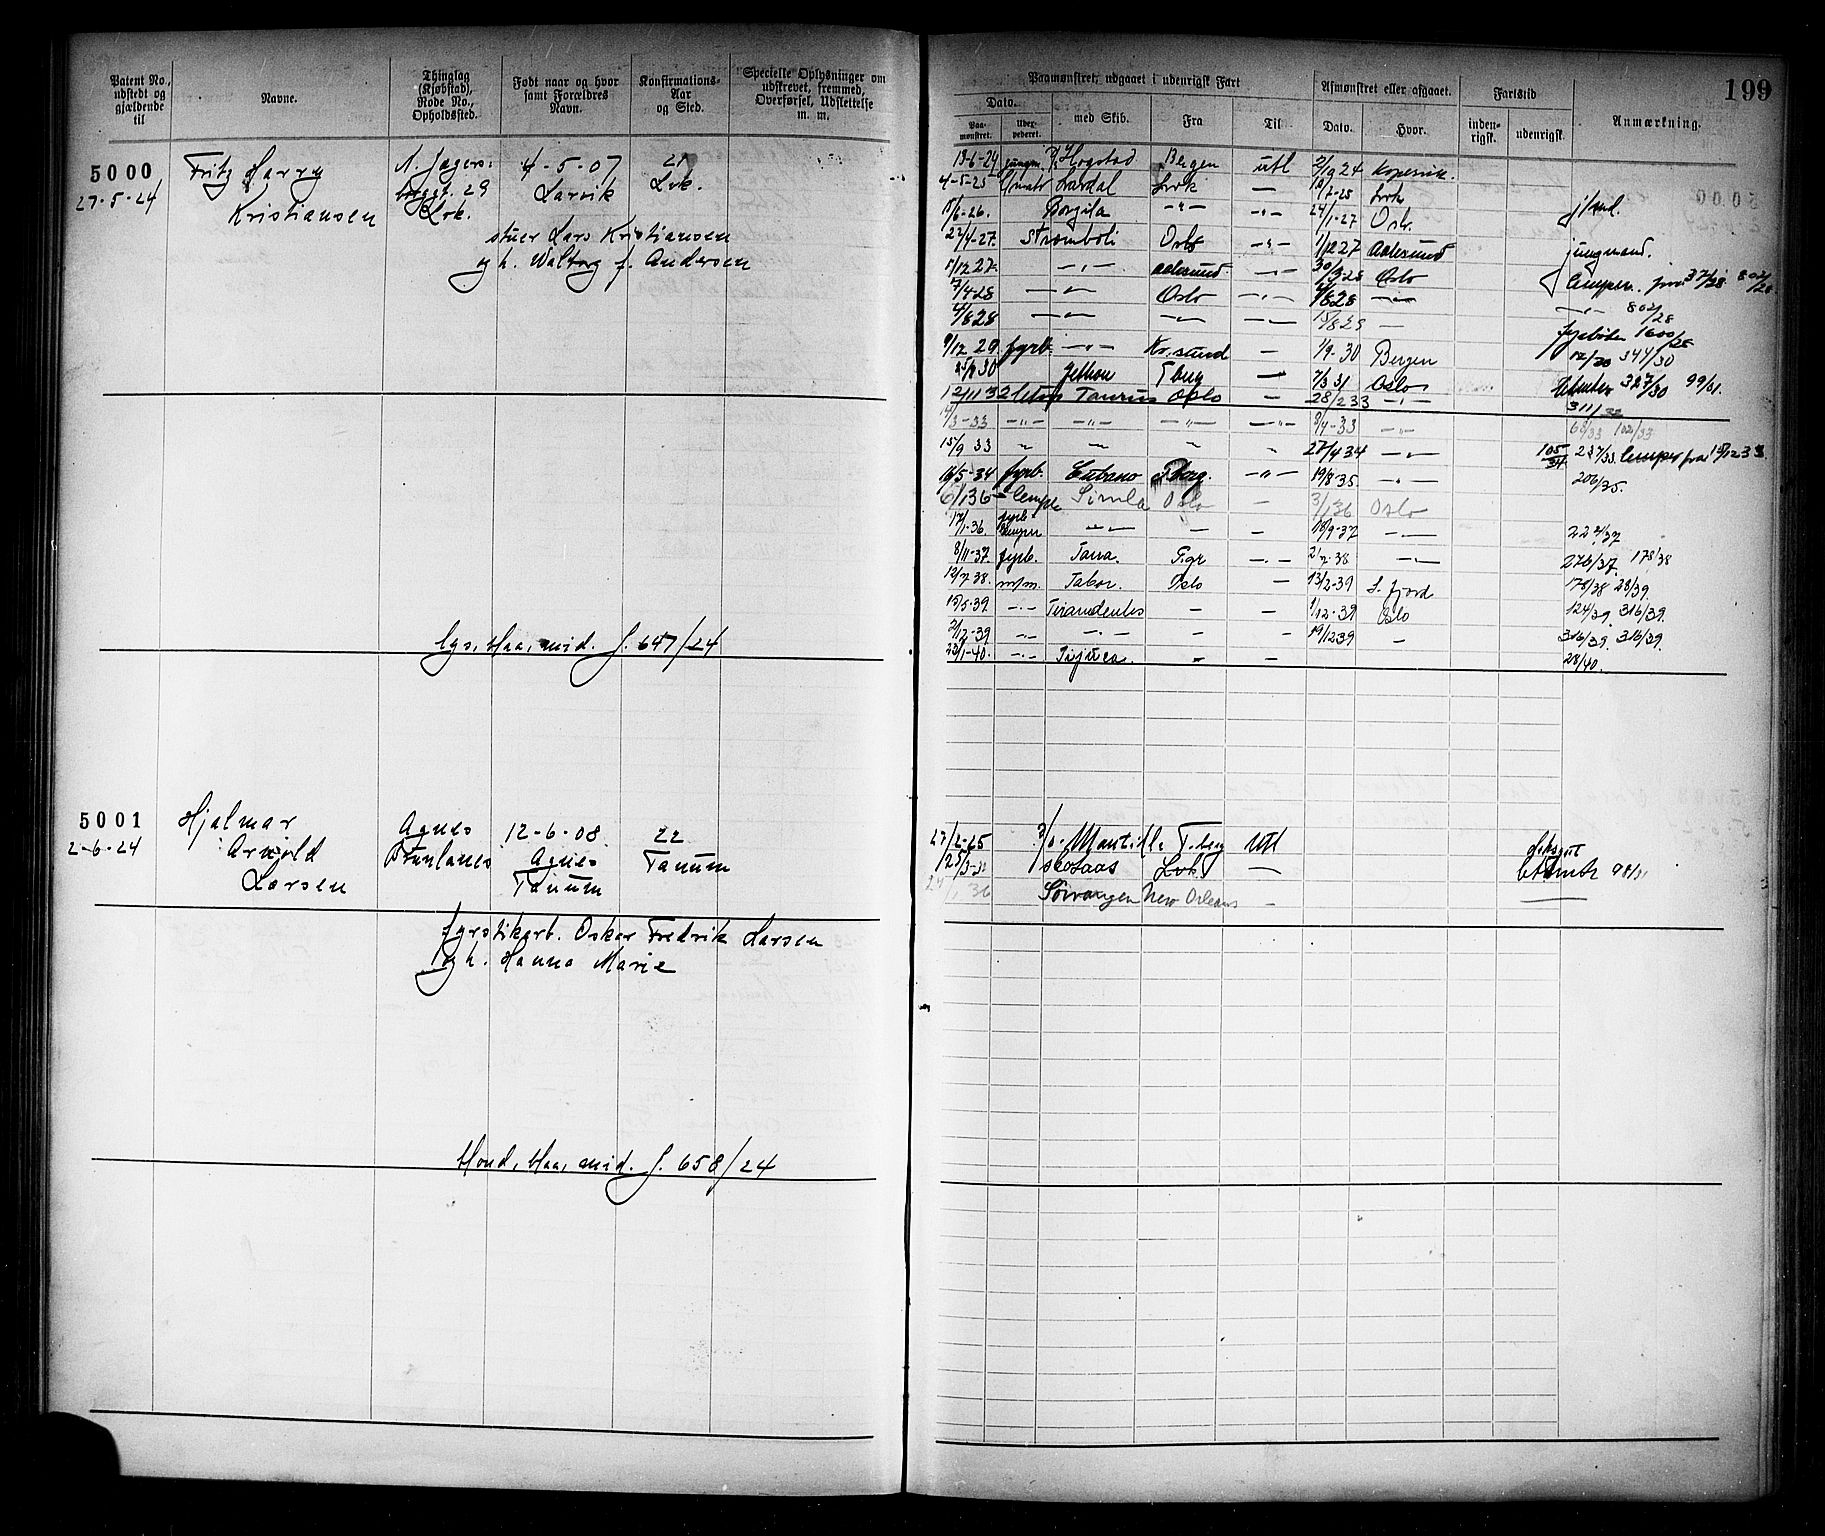 199
Patent No., udstedt og gjældende til
Navne.
Thinglag (Kjøbstad), Rode No., Opholdssted.
Født naar og hvor samt Forældres Navn.
Konfirmations-Aar og Sted.
Specielle Oplysninger om udskrevet, fremmed, Overførsel, Udslettelse m. m.
5000
27-5-24
Fritz Harry
Kristiansen
N. Jagers-
byggt. 29
Lvk.
4-5-07
Larvik
21
Lvk.
stuer Lars Kristiansen
og h. Walborg f. Andersen
lgs. Haa, mid. J. 647/24
5001
2-6-24
Hjalmar
Arnold
Larsen
Agnes
Brunlanes
12-6-08
Agnes
Tanum
22
Tanum
fyrstikarb. Oskar Fredrik Larsen
og h. Hanna Marie
Hond, Haa, mid. J. 658/24
Paamønstret, udgaaet i udenrigsk Fart
Afmønstret eller afgaaet.
Fartstid
Anmærkning.
Dato.
Paa-mønstret.
med Skib.
Fra
Til
Dato.
Hvor.
inden-rigsk.
udenrigsk.
13-6-24 jungm. Hogstad Bergen utl 2/9 24 Kopervik.
4-5-25 Lardal Lvk — Lvk
15/6-26. Borgila -"- -"- 24/1-27 Oslo.
22/4-27. Stromboli Oslo -"- 1/12 27 Aalesund jungmand.
1/12 27. -"- Aalesund -"- 30/3-28 Oslo lemper. fra 37/28 802/28
7/4-28 -"- Oslo -"- 4/8 28 -"-
4/8 28 -"- -"- -"- 15/8 29 — -"- 802/28
9/12 29 fyrb. -"- Kr.sund — 1/9-30 Bergen fyrbøter 1600/28
12/30 344/30
Jethou Tberg — 7/3 31 Oslo 327/30 99/31.
12/11 32 Taurus Oslo — 28/2 33 -"- 311/32
14/3-33 -"- -"- -"- -"- 9/4-33 -"- 63/33 102/33
15/9 33 " " " 27/4 34 -"- 105/34 237/33 lemper fra 15/12 33
16/5-34 fyrb. Cubano Tberg. -"- 19/8-35 -"- 206/35.
6/1 36 lemper Simla Oslo — 3/1 36 Oslo
17/1-36. fyrb lemper -"- — — 18/9-37 -"- 222/37
8/11-37. fyrb. Tana. Tgr -"- 2/7-38 -"- 276/37. 178/38
12/7-38. m/m. Tabor. Oslo — 13/2-39 S. fjord 178/38 28/39.
15/5-39. -"- Tirandentes — — 1/12-39 Oslo 124/39. 316/39.
2/12-39 -"- -"- — — 19/12 39 — 316/39. 316/39.
23/1-40. -"- Tijuca. — — 28/40.
27/2-25 T.berg Utl
Lvk —
98/31
24/1 36 Sørvangen New Orleans —